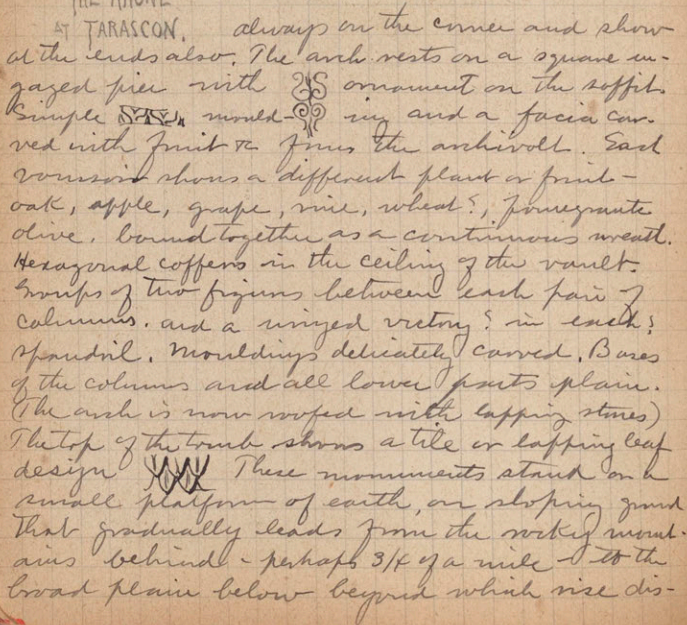 THE RHONE
AT TARASCON. always on the corner and show
at the ends also. The arch rests on a square en-
gaged pier with ornament on the soffit.
Simple mould- ing and a facia car-
ved with fruit &c forms the archivolt. Each
voussoir shows a different plant or fruit -
oak, apple, grape, vine, wheat?, pomegranate
olive. bound together as a continuous wreath.
Hexagonal coffers in the ceiling of the vault.
Groups of two figures between each pair of
columns. and a winged victory? in each?
spandril. Mouldings delicately carved. Bases
of the columns and all lower parts plain.
(The arch is now roofed with lapping stones)
The top of the tomb shows a tile or lapping leaf
design These monuments stand on a
small platform of earth, on sloping ground
that gradually leads from the rocky mount-
ains behind - perhaps 3/4 of a mile - to the
broad plain below beyond which rise dis-